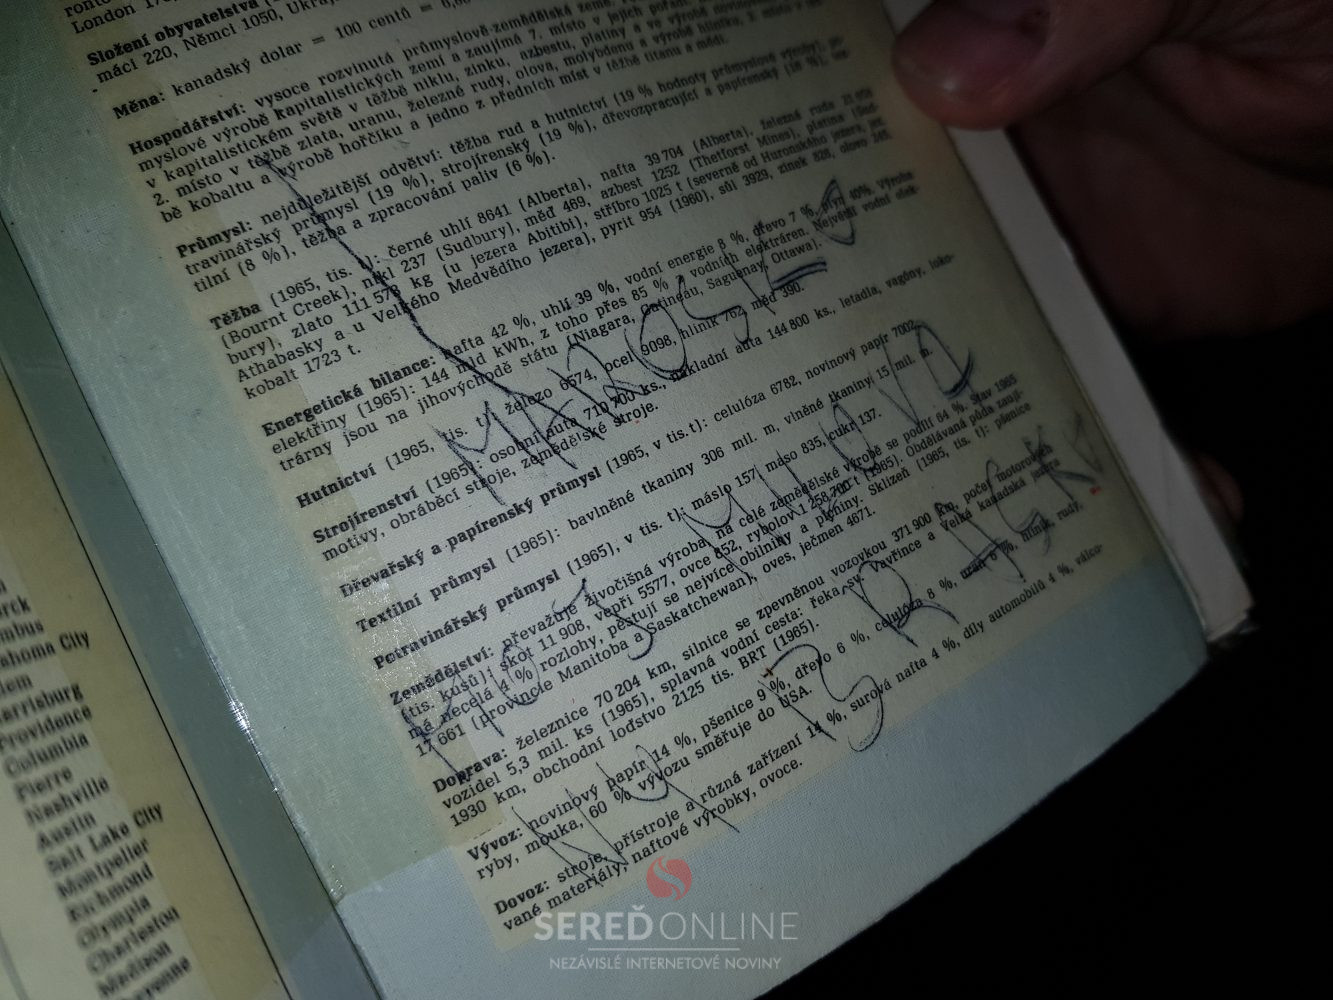 Složení obyvatelstva
máci 220, Němci 1050,
Měna: kanadský dolar = 100 centů =
Hospodářství: vysoce rozvinutá průmyslově-zemědělská země.
myslové výrobě kapitalistických zemí a zaujímá 7. místo v jejich pořadí.
v kapitalistickém světě v těžbě niklu, zinku, azbestu, platiny a ve výrobě novinového
2. místo v těžbě zlata, uranu, železné rudy, olova, molybdenu a výrobě hliníku, 3. místo v
bě kobaltu a výrobě hořčíku a jedno z předních míst v těžbě titanu a mědi.
Průmysl: nejdůležitější odvětví: těžba rud a hutnictví (19 % hodnoty průmyslové výroby),
travinářský průmysl (19 %), strojírenský (19 %), dřevozpracující a papírenský (16 %),
tilní (8 %), těžba a zpracování paliv (6 %).
Těžba (1965, tis. t): černé uhlí 8641 (Alberta), nafta 39 704 (Alberta), železná ruda
(Bournt Creek), nikl 237 (Sudbury), měď 469, azbest 1252 (Thetforst Mines), platina
bury), zlato 111 578 kg (u jezera Abitibi), stříbro 1025 t (severně od Huronského jezera,
Athabasky a u Velkého Medvědího jezera), pyrit 954 (1960), sůl 3929, zinek 826, olovo
kobalt 1723 t.
Energetická bilance: nafta 42 %, uhlí 39 %, vodní energie 8 %, dřevo 7 %, Výroba
elektřiny (1965): 144 mld kWh, z toho přes 85 % z vodních elektráren. Největší vodní elek-
trárny jsou na jihovýchodě státu (Niagara, Gatineau, Saguenay, Ottawa).
Hutnictví (1965, tis. t): železo 6574, ocel 9098, hliník 762, měď 390.
Strojírenství (1965): osobní auta 710 700 ks., nákladní auta 144 800 ks., letadla, vagóny, loko-
motivy, obráběcí stroje, zemědělské stroje.
Dřevařský a papírenský průmysl (1965, v tis. t): celulóza 6782, novinový papír 7002.
Textilní průmysl (1965): bavlněné tkaniny 306 mil. m, vlněné tkaniny 15 mil. m.
Potravinářský průmysl (1965), v tis. t): máslo 157, máso 835, cukr 137.
Zemědělství: převažuje živočišná výroba, na celé zemědělské výrobě se podílí 64 %. Stav 1965
(tis. kusů): skot 11 908, vepři 5577, ovce 852, rybolov 1 258 700 t (1965). Obdělávaná půda zauji-
má necelá 4 % rozlohy, pěstují se nejvíce obilniny a pícniny. Sklizeň (1965, tis. t): pšenice
17 661 (provincie Manitoba a Saskatchewan), oves, ječmen 4671.
Doprava: železnice 70 204 km, silnice se zpevněnou vozovkou 371 900 km, počet motorových
vozidel 5,3 mil. ks (1965), splavná vodní cesta: řeka sv. Vavřince a Velká kanadská jezera
1930 km, obchodní loďstvo 2125 tis. BRT (1965).
Vývoz: novinový papír 14 %, pšenice 9 %, dřevo 6 %, celulóza 8 %, uran 6 %, hliník, rudy,
ryby, mouka, 60 % vývozu směřuje do USA.
Dovoz: stroje, přístroje a různá zařízení 14 %, surová nafta 4 %, díly automobilů 4 %, válco-
vané materiály, naftové výrobky, ovoce.
ahoma City
Harrisburg
Providence
Columbia
Pierre
Nashville
Austin
Salt Lake City
Montpelier
Richmond
Olympia
Charleston
Madison
SEREĎONLINE
NEZÁVISLÉ INTERNETOVÉ NOVINY